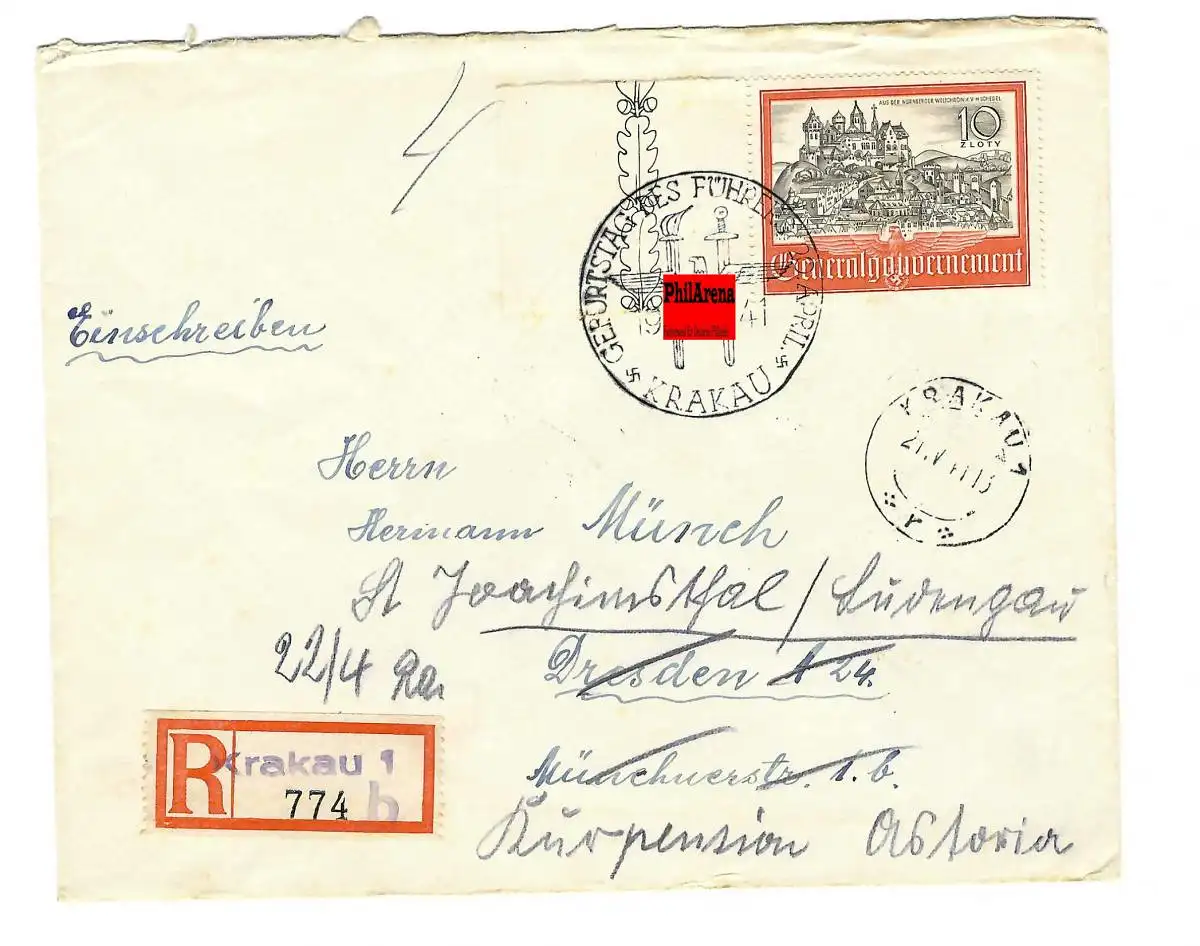 4
AUS DER NÜRNBERGER WELTCHRONIK V. H. SCHEDEL
10
ZLOTY
Generalgouvernement
GEBURTSTAG DES FÜHRERS 20. APRIL.
1941
KRAKAU
PhilArena
Einschreiben
KRAKAU 1
r
Herrn
Hermann Münch
St Joachimsthal / Sudengau
22/4
Dresden A 24.
Münchnerstr. 1. b.
Kurpension Astoria
R Krakau 1
774 b